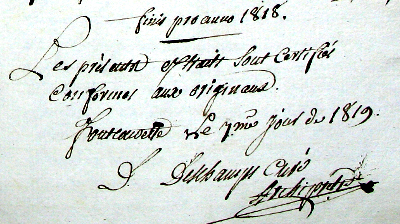 finis pro anno 1818.
Les présents extraits sont certifiés
conformes aux originaux.
le 7me jour de 1819.
D. Deschamps Curé
Archiprêtre